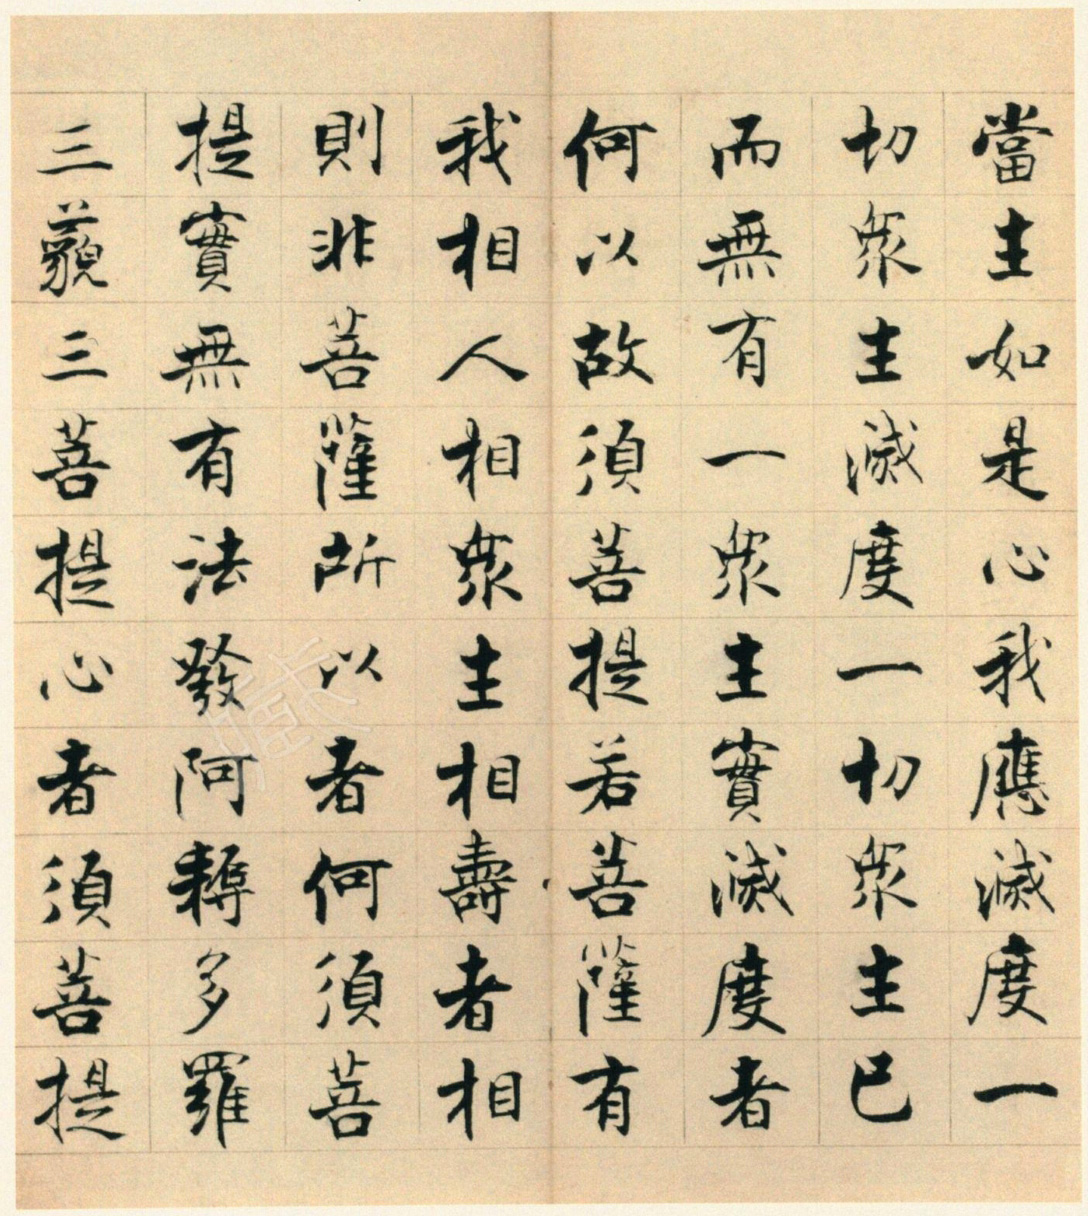 當生如是心我應滅度一
切眾生滅度一切眾生已
而無有一眾生實滅度者
何以故須菩提若菩薩有
我相人相眾生相壽者相
則非菩薩所以者何須菩
提實無有法發阿耨多羅
三藐三菩提心者須菩提